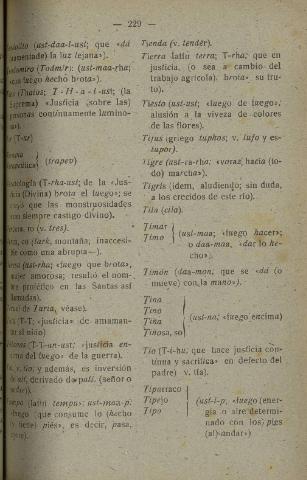 — 229 —
(ust-daa-l-ust; que «dá
la luz lejana»).
(Todm/r: (ust-maa-rha;
fuego hechó brota»).
(Thatus; T-H-a-i-ust; (la
«Justicia (sobre las)
contínuamente lumino-
(T-sr)
(trapev)
(T-rha-ust; de la «Jus-
(Divina) brota el fuego»; se
que las monstruosidades
siempre castigo divino).
ro (v. tres).
co (lark, montaña; inaccesi-
como una abrupta—).
(ust-rha; «luego que brota»,
amorosa; resultó el nom-
profético en las Santas así
llamadas).
de Tarra, véase).
(T-T; «justicia» de amaman-
al niño)
(T-T-un-ust; «justicia en-
del fuego» de la guerra).
tio, y además, es inversión
ust, derivado de pati. (señor o
(latín tempus; ust-maa-p:
«fuego (que consume lo (hecho
tiene) piés», es decir, pasa,
Tienda (v. tender).
Tierra latín terra; T-rha; que en
justicia, (o sea a cambio del
trabajo agrícola). brota» su fru-
to).
Tiesto (ust-ust; «luego de luego»;
alusión a la viveza de colores
de las flores).
Tifus (griego tuphos; v. lufo y es-
tupor).
Tigre (ust-ca-rha: «voraz hacia (to-
do) marcha»).
Tigris (idem, aludiendo; sin duda,
a los crecidos de este río).
Tila (cila).
Timar
Timo
(ust-maa; «luego hacer»;
o daa-maa, «dar lo he-
cho»).
Timón (daa-mon; que se «dá (o
mueve) con la mano»).
Tina
Tino
Tiña
Tiñosa, so
(ust-na; «luego encima)
Tío (T-i-hu; que hace justicia con-
tínua y sacrifica» en defecto del
padre) v. tía).
Tiparraco
Tipejo
Tipo
(ust-i-p; «luego (ener-
gía o aire determi-
nado con los) pies
(al) andar»)